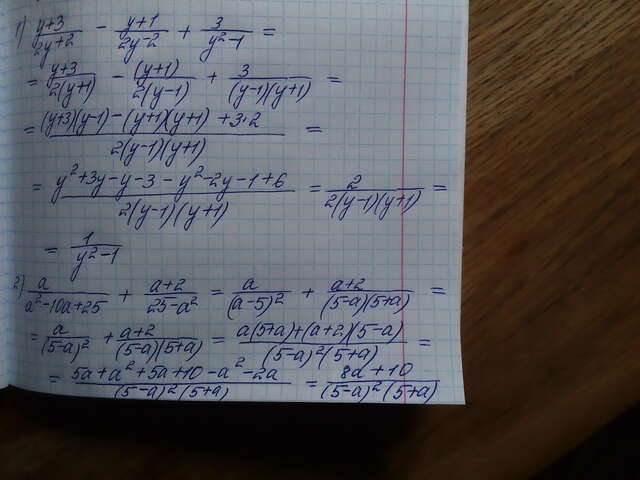 1) (y+3)/(2y+2) - (y+1)/(2y-2) + 3/(y²-1) =
= (y+3)/(2(y+1)) - (y+1)/(2(y-1)) + 3/((y-1)(y+1)) =
= ((y+3)(y-1)-(y+1)(y+1)+3·2)/(2(y-1)(y+1)) =
= (y²+3y-y-3-y²-2y-1+6)/(2(y-1)(y+1)) = 2/(2(y-1)(y+1)) =
= 1/(y²-1)
2) a/(a²-10a+25) + (a+2)/(25-a²) = a/(a-5)² + (a+2)/((5-a)(5+a)) =
= a/(5-a)² + (a+2)/((5-a)(5+a)) = (a(5+a)+(a+2)(5-a))/((5-a)²(5+a)) =
= (5a+a²+5a+10-a²-2a)/((5-a)²(5+a)) = (8a+10)/((5-a)²(5+a))